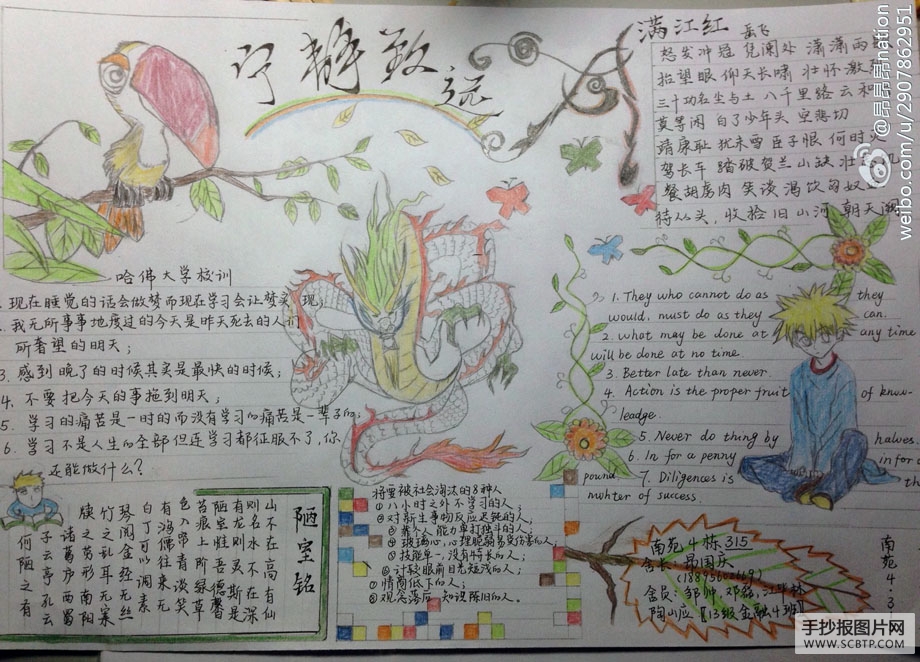 宁静致远
满江红 岳飞
怒发冲冠 凭阑处 潇潇雨
抬望眼 仰天长啸 壮怀激
三十功名尘与土 八千里路 云和
莫等闲 白了少年头 空悲切
靖康耻 犹未雪 臣子恨 何时
驾长车 踏破贺兰山缺 壮
餐胡虏肉 笑谈渴饮匈奴
待从头、收拾旧山河 朝天阙
哈佛大学校训
1.现在睡觉的话会做梦而现在学习会让梦实现
2.我无所事事地度过的今天是昨天死去的人们
所奢望的明天；
3.感到晚了的时候其实是最快的时候；
4.不要把今天的事拖到明天；
5.学习的痛苦是一时的而没有学习的痛苦是一辈子的；
6.学习不是人生的全部但连学习都征服不了,你
还能做什么?
1. They who cannot do as they
would, must do as they can.
2. what may be done at any time
will be done at no time.
3. Better late than never.
4. Action is the proper fruit of know-
leadge.
5. Never do thing by halves.
6. In for a penny in for a
pound.
7. Diligences is
muhter of success.
陋室铭
山不在高有仙
则名水不在深
有龙则灵斯是
陋室惟吾德馨
苔痕上阶绿草
色入帘青谈笑
有鸿儒往来无
白丁可以调素
琴阅金经无丝
竹之乱耳无案
牍之形南阳
诸葛庐西蜀
子云亭孔云
何陋之有
将要被社会淘汰的8种人
①八小时之外不学习的人；
②对新生事物反应迟钝的人；
③靠个人能力单打独斗的人；
④玻璃心,心理脆弱易受伤害的人；
⑤技能单一,没有特长的人；
⑥计较眼前目光短浅的人；
⑦情商低下的人；
⑧观念落后,知识陈旧的人。
南苑4栋315
舍长:昂国庆
舍员:邹帅,邓磊,江华林
陶山应【13级金融4班】
南苑4·3
@昂昂昂nation
weibo.com/u/2907862951
手抄报图片网
WWW.SCBTP.COM